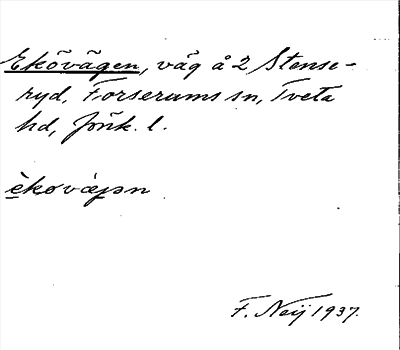 Ekövägen, väg å 2 Stense-
ryd, Forserums sn, Tveta
hd, Jönk. l.
F. Neij 1937.